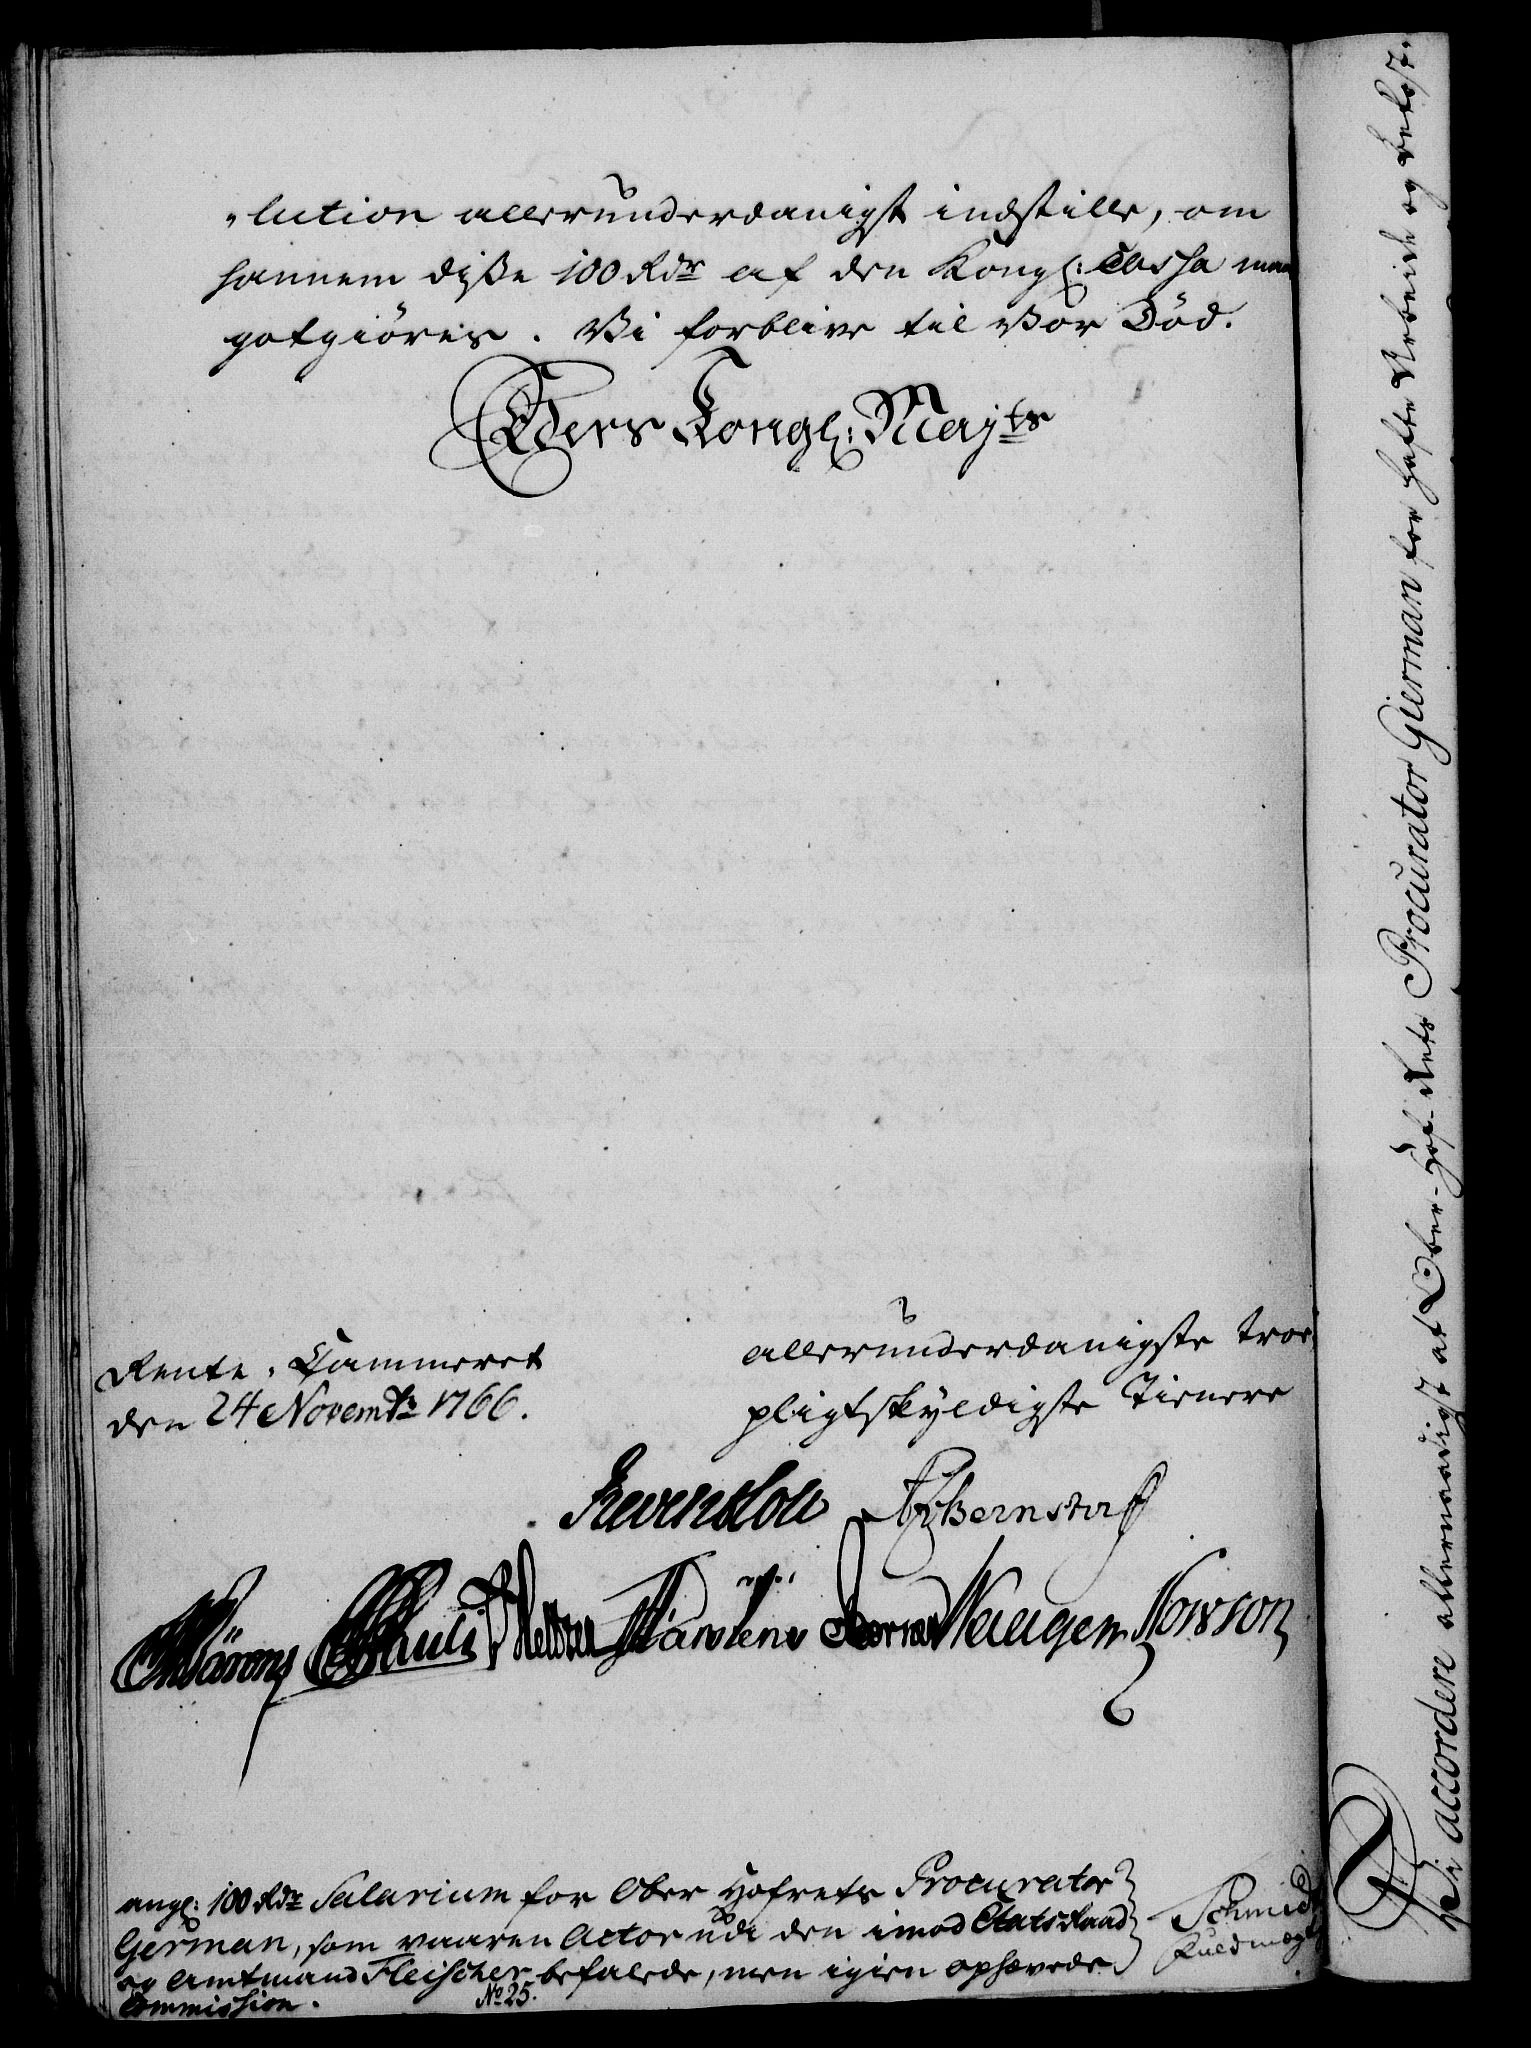 „lution allerunderdanigst indstille, om
hannem diße 100 Rdr af den Kongl: Cassa maa
gotgiöres. Vi forblive til Vor Död.
Eders Kongl: Mayts
Rente-Cammeret
den 24 Novembr 1766.
allerunderdanigste troe
pligtskyldigste Tienere
Reventlow AGBernstorff
Pauli Heltzen Körbing Waugensen
angl: 100 Rdr Salarium for Ober Hofrets Procurator
German, som vaaren Actor udi den imod Etats Raad
og Amtmand Fleischer befalede, men igien ophævede
Commission.
No 25.
Schmidt
Fuldmægt
Vi accordere allernaadigst at Ober-Hof-Rets Procurator Gierman for hafte Arbeide og bekost-